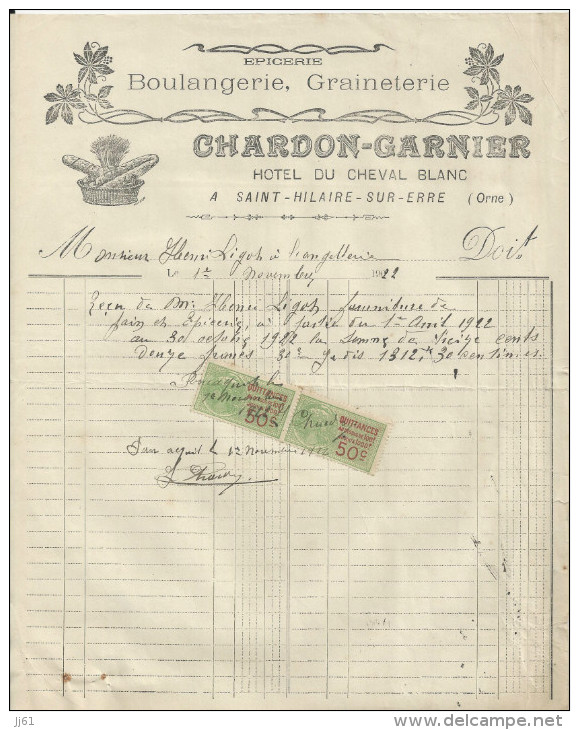 EPICERIE
Boulangerie, Graineterie
CHARDON-GARNIER
HOTEL DU CHEVAL BLANC
A SAINT-HILAIRE-SUR-ERRE (Orne)
Monsieur Henri Ligot à Doit
Le 1er Novembre 1922
Reçu de Mr Henri Ligot fourniture de
pain et Epicerie, à partir du 1er Avril 1922
au 30 octobre 1922 la somme de treize cents
douze francs 30c Je dis 1312f 30 centimes
Pour acquit le
1er Novembre
1922
QUITTANCES
50c
QUITTANCES
50c
Pour acquit le 1er Novembre 1922
jj61
delcampe.net